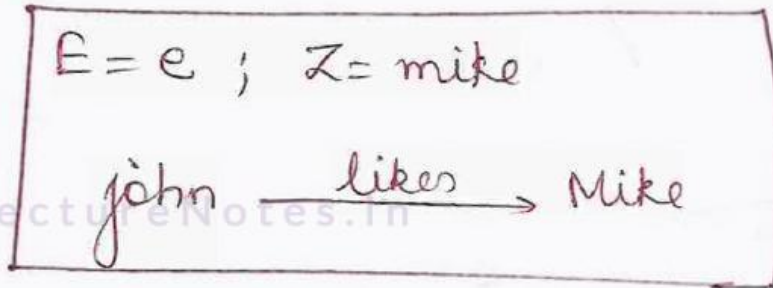 E = e ; Z = mike
john likes → Mike
LectureNotes.in